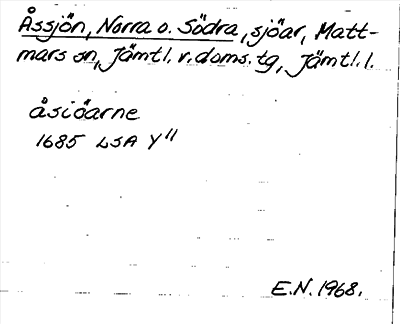 Åssjön, Norra o. Södra, sjöar, Matt-
mars sn, Jämtl. v. doms. tg, Jämtl. l.
åsiöarne
1685 LSA Y"
E.N. 1968.